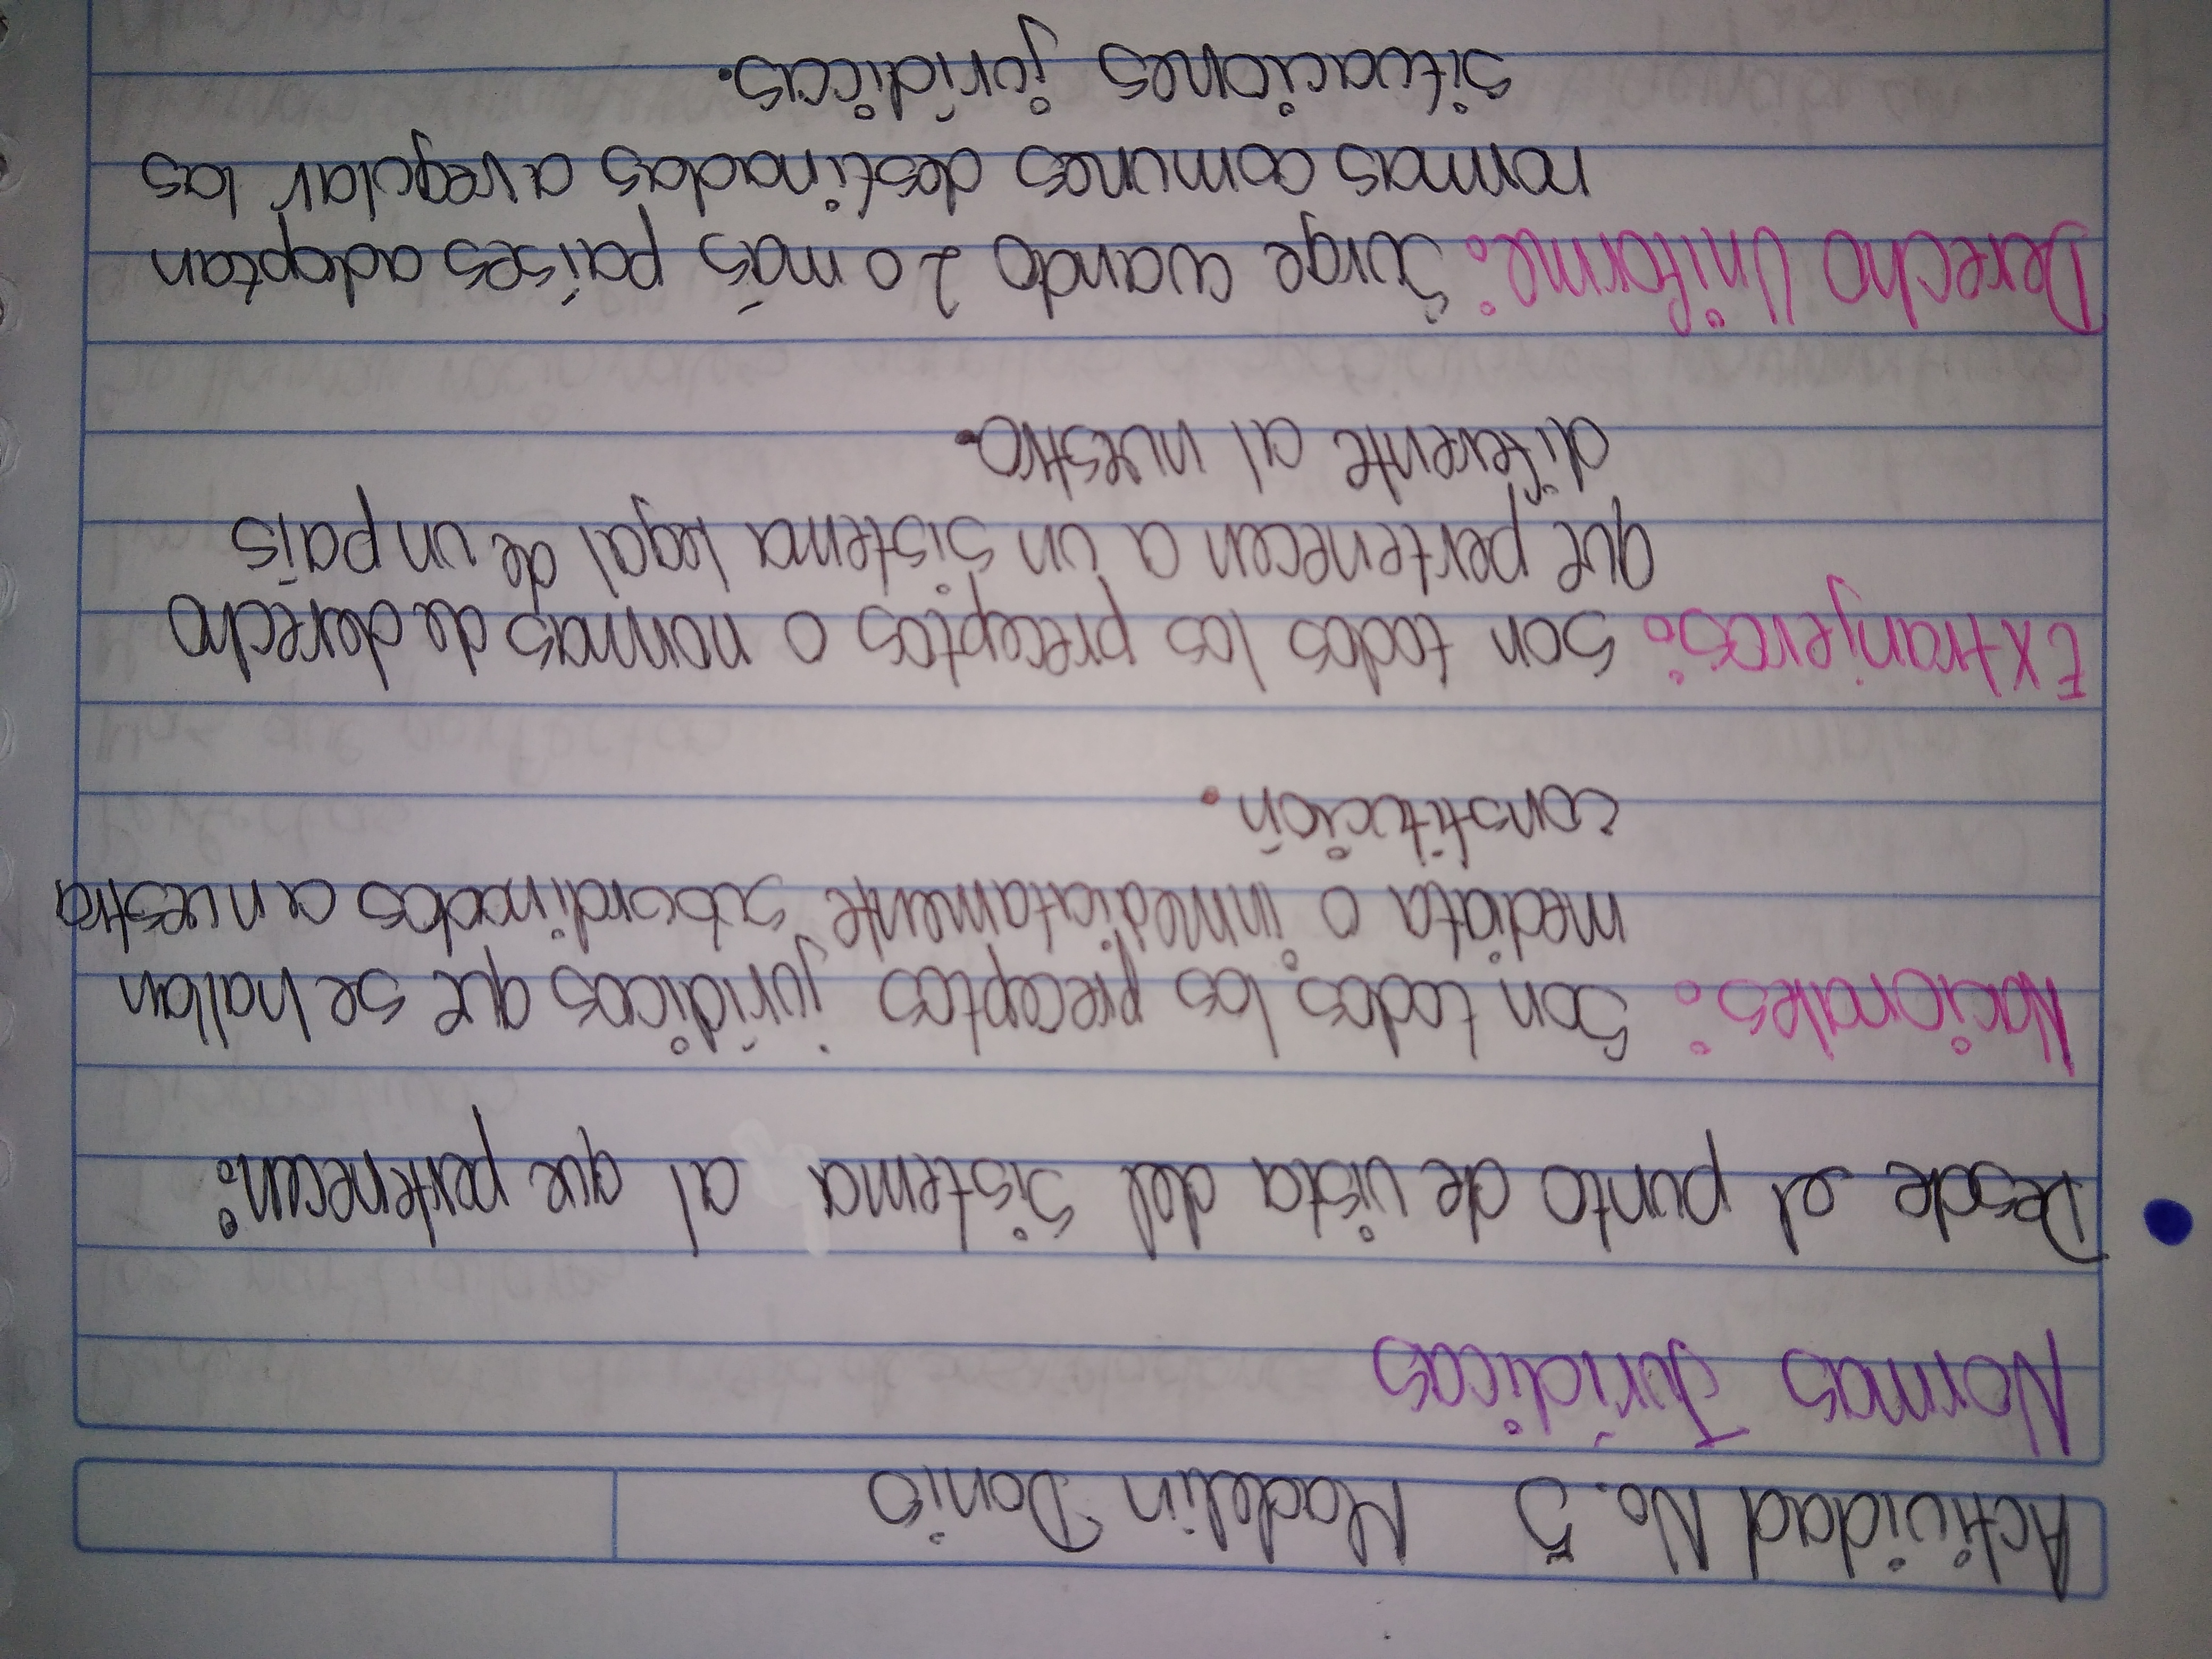 Actividad No. 5 Madelin Donis
Normas Jurídicas
Desde el punto de vista del sistema al que pertenecen:
Nacionales: Son todos los preceptos jurídicos que se hallan
mediata o inmediatamente subordinados a nuestra
constitución.
Extranjeros: Son todos los preceptos o normas de derecho
que pertenecen a un sistema legal de un país
diferente al nuestro.
Derecho Uniforme: Surge cuando 2 o más países adoptan
normas comunes destinadas a regular las
situaciones jurídicas.